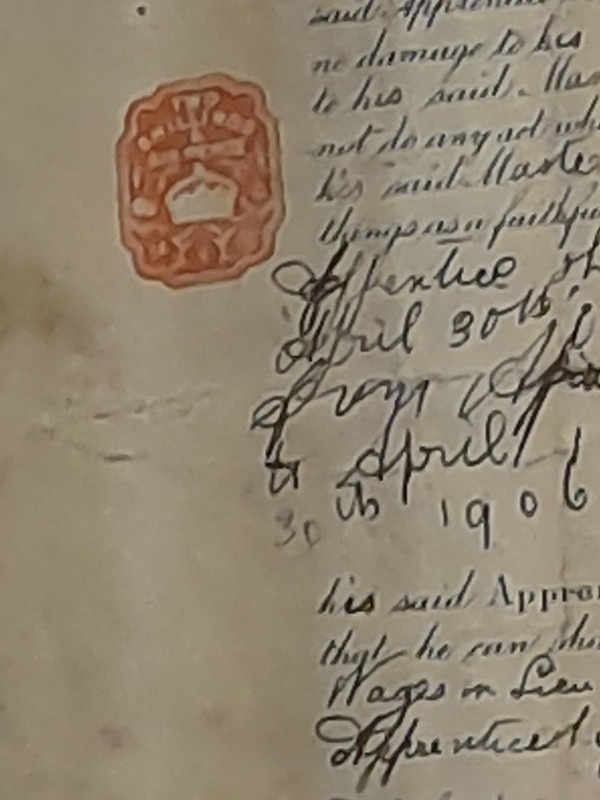 said Appren
no damage to his
to his said Mas
not do any act whe
his said Maste
things as a faithfu
Apprentice sh
April 30th
from Apri
to April 1
30 th 1906
his said Appren
that he can sho
Wages in Lieu
Apprentice